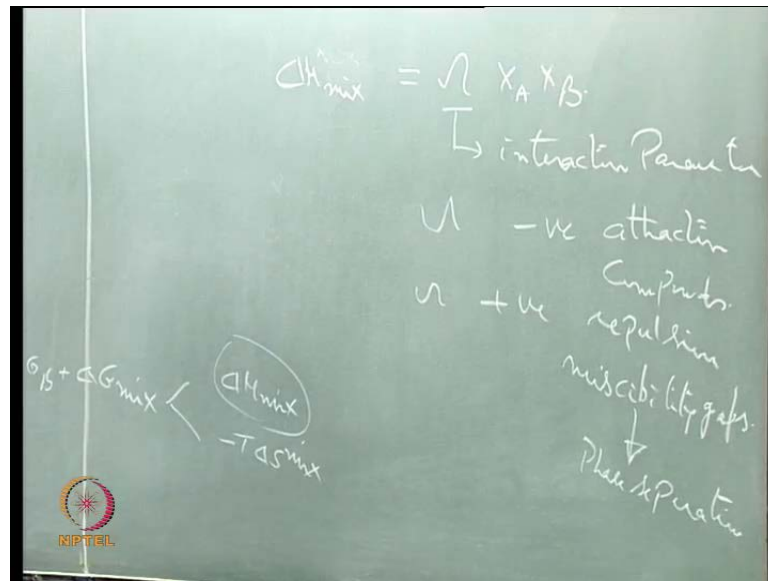 ΔH_mix = Ω X_A X_B.
↳ interaction Parameter
Ω -ve attraction
Compounds.
Ω +ve repulsion
miscibility gaps.
↓
Phase separation
G_B + ΔG_mix < ΔH_mix
-TΔS_mix
NPTEL